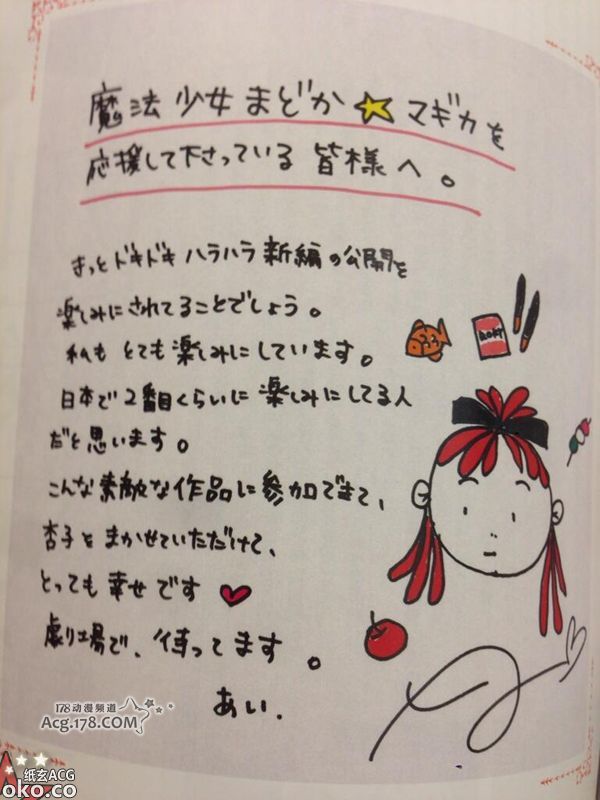 魔法少女まどか★マギカを
応援して下さっている皆様へ。
きっとドキドキハラハラ新編の公開を
楽しみにされてることでしょう。
私もとても楽しみにしています。
日本で2番目くらいに楽しみにしてる人
だと思います。
こんな素敵な作品に参加できて、
杏子をまかせていただけて、
とっても幸せです♥
劇場で、待ってます。
あい.
178动漫频道
Acg.178.COM
纸玄ACG
oko.co